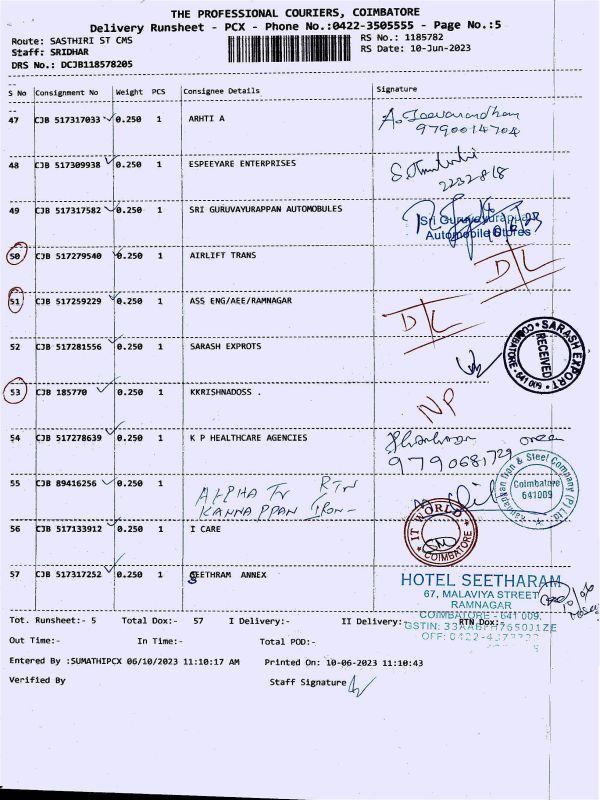 THE PROFESSIONAL COURIERS, COIMBATORE
Delivery Runsheet - PCX - Phone No.:0422-3505555 - Page No.:5
Route: SASTHIRI ST CMS
RS No.: 1185782
Staff: SRIDHAR
RS Date: 10-Jun-2023
DRS No.: DCJB118578205
S No Consignment No Weight PCS Consignee Details Signature
47 CJB 517317033 0.250 1 ARHTI A
9790014704
48 CJB 517309938 0.250 1 ESPEEYARE ENTERPRISES
2232818
49 CJB 517317582 0.250 1 SRI GURUVAYURAPPAN AUTOMOBULES
Sri Guruvayurappan
Automobile Stores
50 CJB 517279540 0.250 1 AIRLIFT TRANS
D/L
51 CJB 517259229 0.250 1 ASS ENG/AEE/RAMNAGAR
D/L
52 CJB 517281556 0.250 1 SARASH EXPROTS
SARASH EXPORT
RECEIVED
COIMBATORE - 641 009.
53 CJB 185770 0.250 1 KKRISHNADOSS .
NP
54 CJB 517278639 0.250 1 K P HEALTHCARE AGENCIES
9790681729
55 CJB 89416256 0.250 1
ALPHA TV RTN
KANNAPPAN IRON-
Iron & Steel Company (P) Ltd.
Coimbatore
641009
56 CJB 517133912 0.250 1 I CARE
IT WORLD
COIMBATORE
57 CJB 517317252 0.250 1 SEETHRAM ANNEX
HOTEL SEETHARAM
67, MALAVIYA STREET
RAMNAGAR
COIMBATORE - 641 009.
Tot. Runsheet:- 5 Total Dox:- 57 I Delivery:- II Delivery:- RTN Dox:-
Out Time:- In Time:- Total POD:-
Entered By :SUMATHIPCX 06/10/2023 11:10:17 AM Printed On: 10-06-2023 11:10:43
Verified By Staff Signature